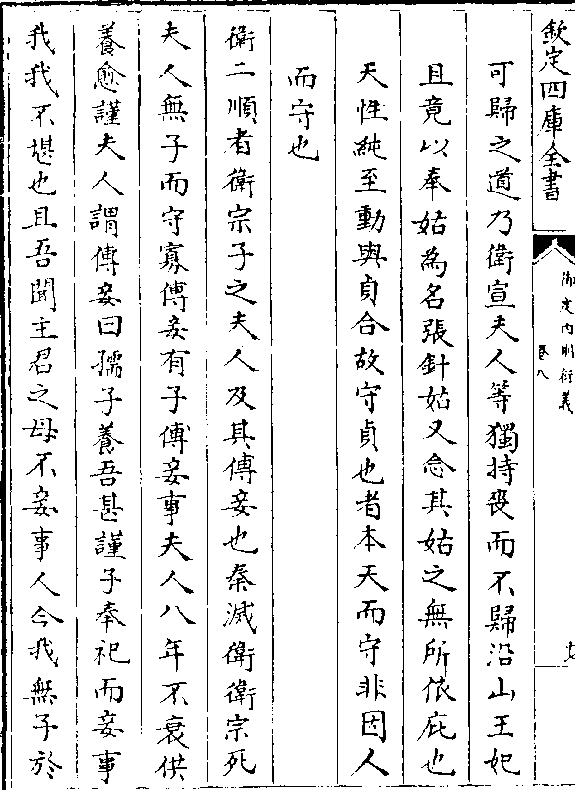 欽定四庫全書
御定内則衍義
卷八
可歸之道乃衛宣夫人等獨持喪而不歸沿山王妃
且竟以奉姑為名張針姑又念其姑之無所依庇也
天性純至動與貞合故守貞也者本天而守非因人
而守也
衛二順者衛宗子之夫人及其傅妾也秦滅衛衛宗死
夫人無子而守寡傅妾有子傅妾事夫人八年不衰供
養愈謹夫人謂傅妾曰孺子養吾甚謹子奉祀而妾事
我我不堪也且吾聞主君之母不妾事人今我無子於